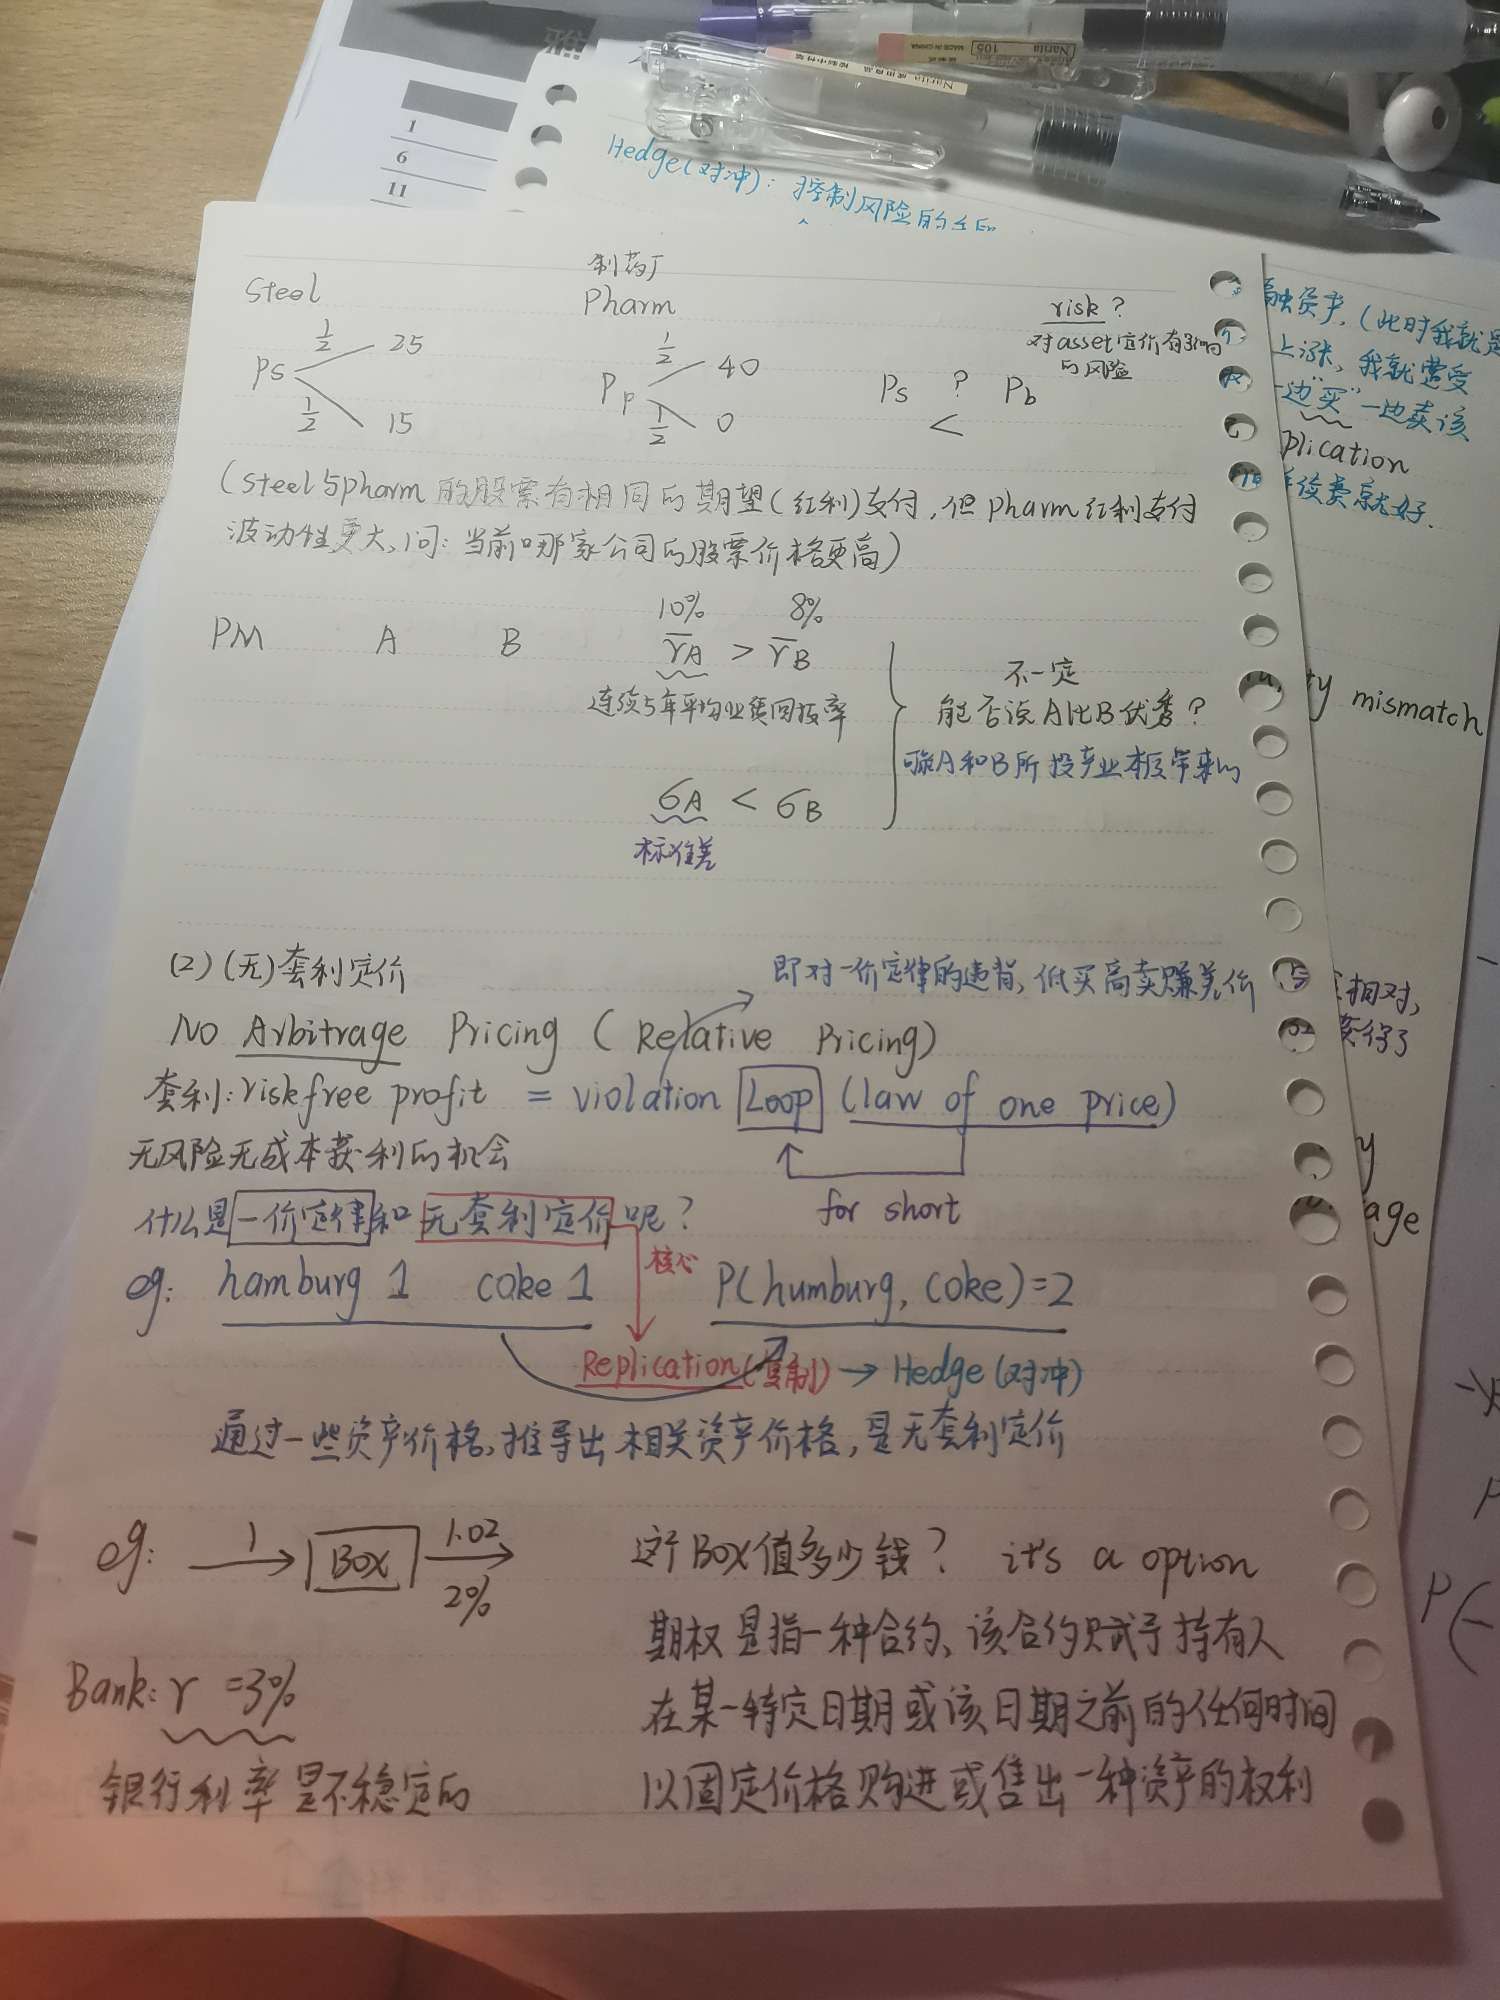 Narita
MADE IN CHINA
105
Narita
1
6
11
Hedge(对冲): 控制风险的
制药厂
Steel
Pharm
risk?
对asset定价有影响
的风险
1/2 25
Ps
1/2 15
1/2 40
Pp
1/2 0
Ps ? Pb
<
(steel与pharm的股票有相同的期望(红利)支付,但pharm红利支付
波动性更大,问:当前哪家公司的股票价格更高)
10% 8%
PM A B r̄A > r̄B
连续5年平均业绩回报率
不一定
能否说A比B优秀?
可能A和B所投产业本质带来的
σA < σB
标准差
(2)(无)套利定价
即对一价定律的违背,低买高卖赚差价
No Arbitrage Pricing (Relative Pricing)
套利:riskfree profit = violation Loop (law of one price)
无风险无成本获利的机会
for short
什么是一价定律和无套利定价呢?
核心
eg: hamburg 1 coke 1 P(humburg, coke)=2
Replication(复制)→Hedge(对冲)
通过一些资产价格,推导出相关资产价格,是无套利定价
eg: 1 BOX 1.02
2%
这个BOX值多少钱? it's a option
期权是指一种合约,该合约赋予持有人
在某一特定日期或该日期之前的任何时间
以固定价格购进或售出一种资产的权利
Bank: r =3%
银行利率是不稳定的
融资产,(此时我就是
上涨,我就遭受
一边"买"一边卖该
plication
续费就好.
ty mismatch
相对,
y
age
P(